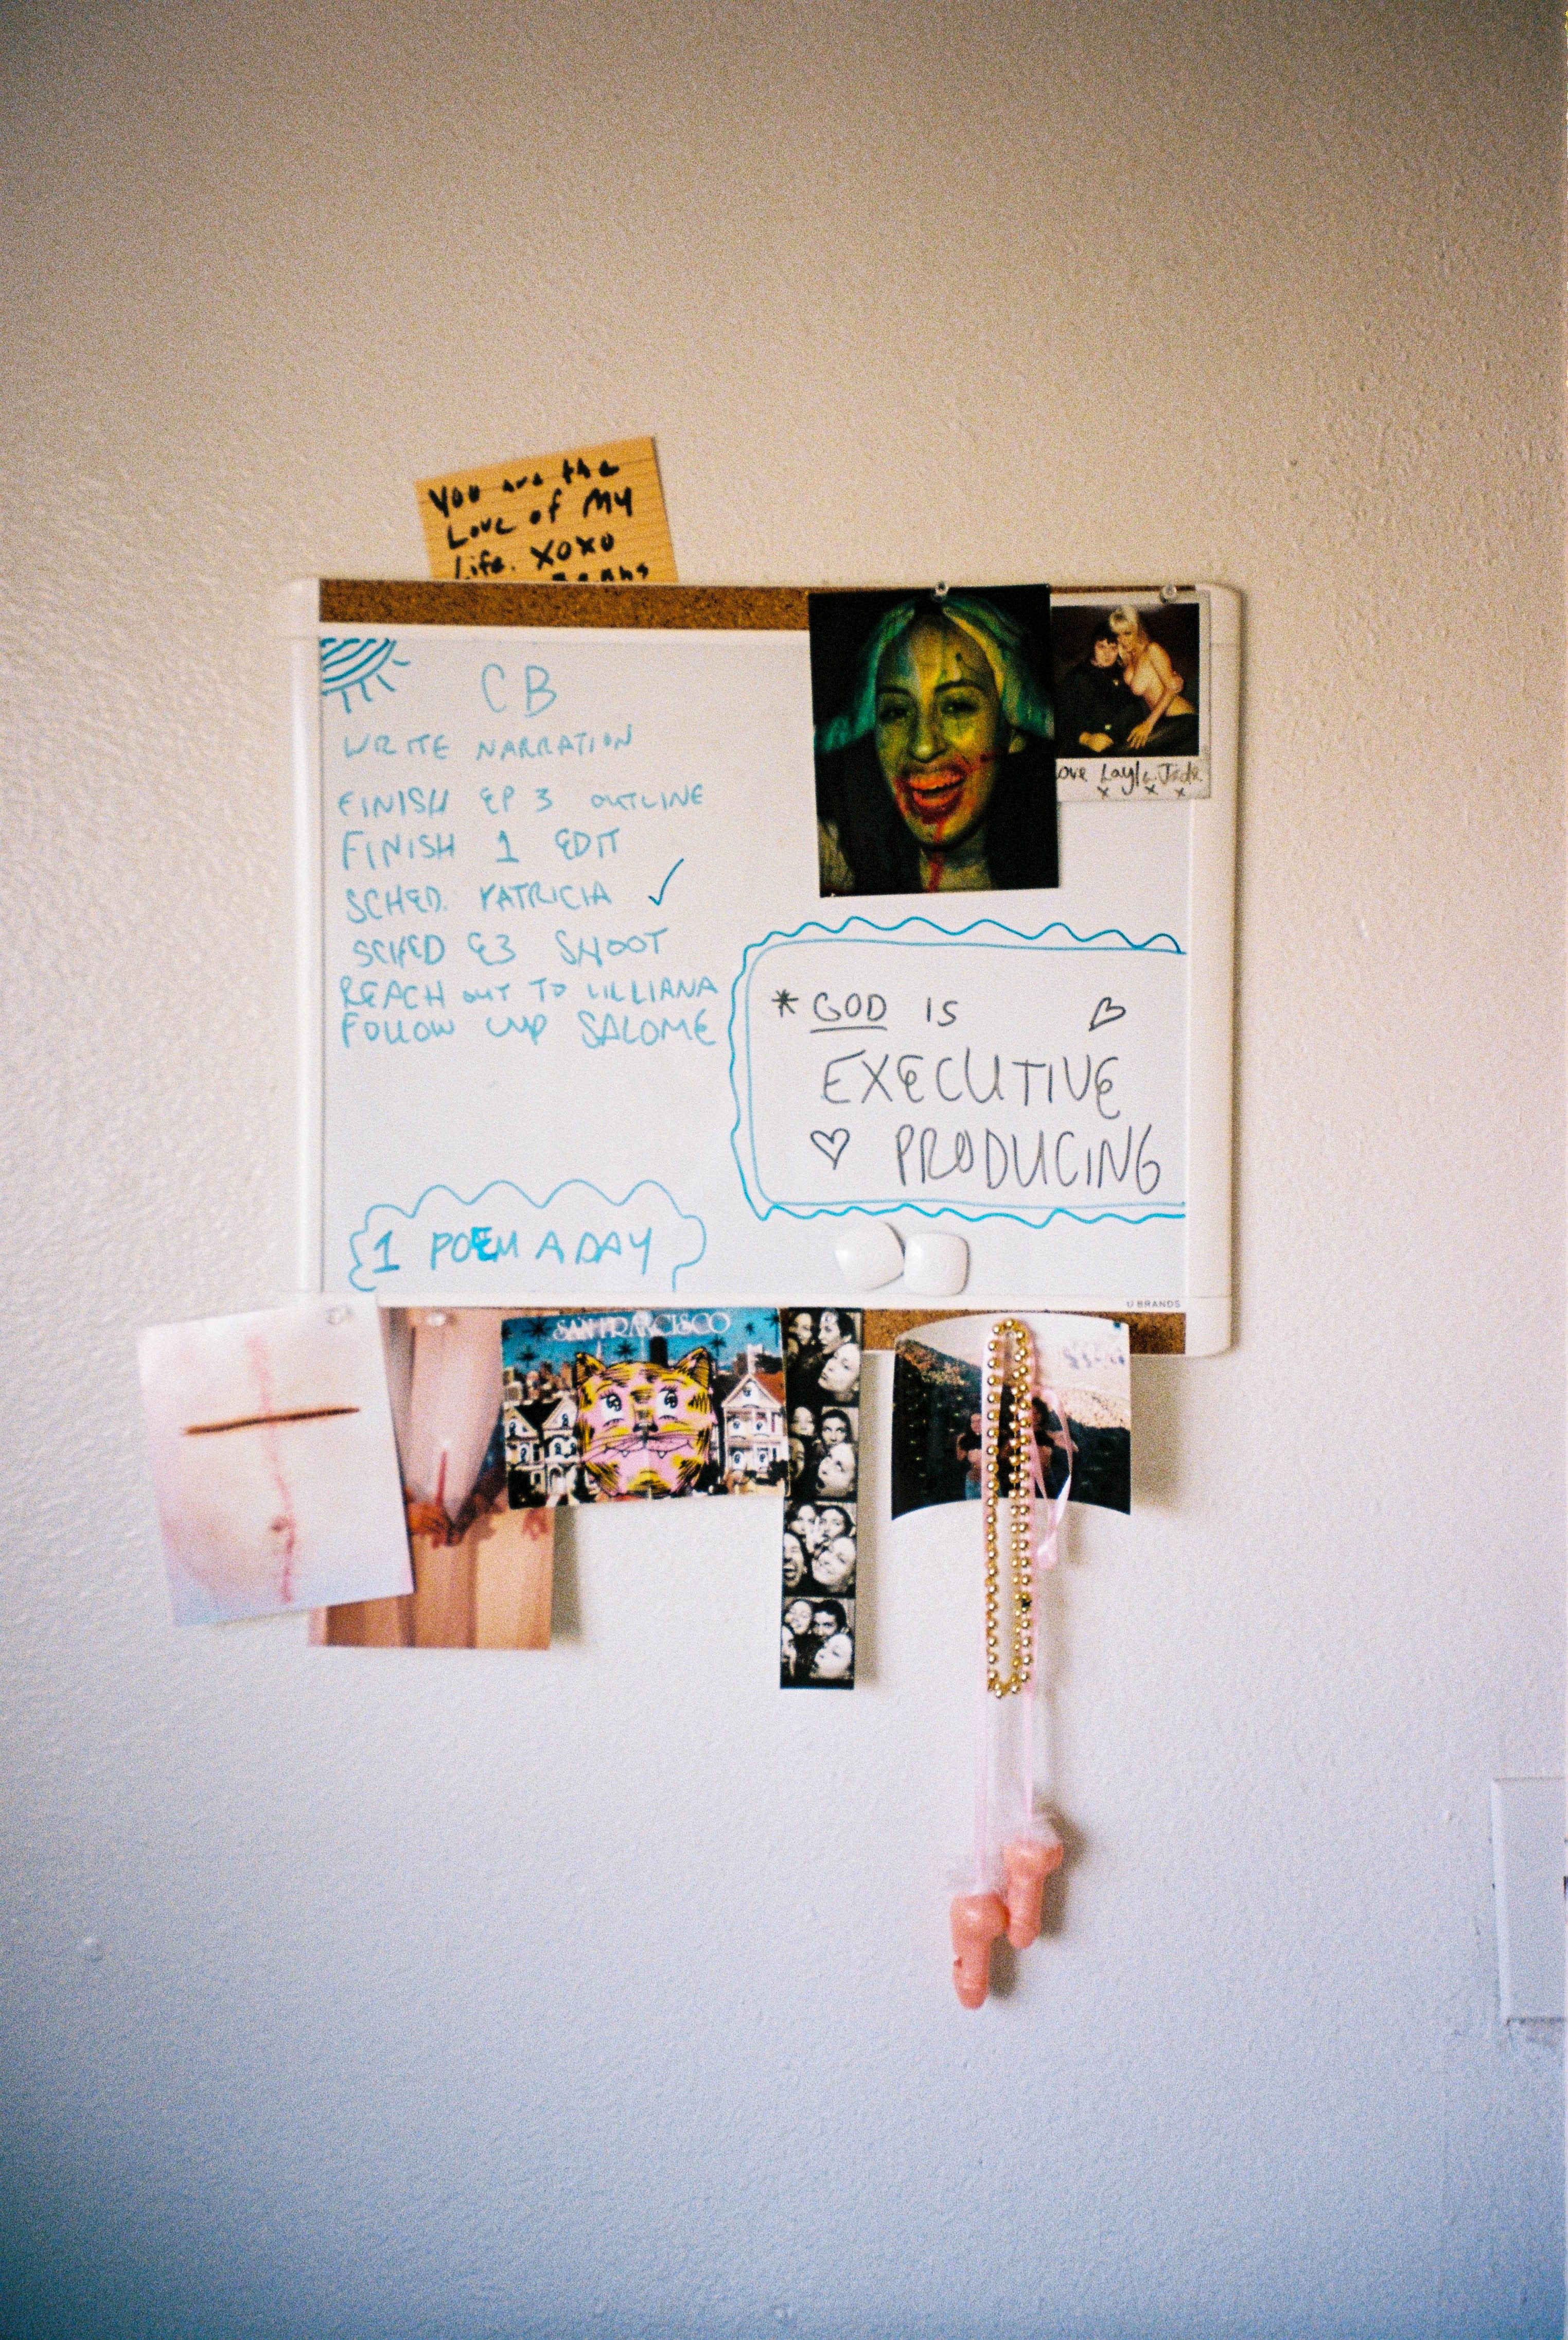 You are the
Love of My
Life. XOXO
CB
WRITE NARRATION
FINISH EP 3 OUTLINE
FINISH 1 EDIT
SCHED. PATRICIA ✓
SCHED E3 SHOOT
REACH OUT TO LILLIANA
FOLLOW UP SALOME
1 POEM A DAY
Love Layla Jade
x x x
* GOD IS
EXECUTIVE
PRODUCING
U BRANDS
SAN FRANCISCO